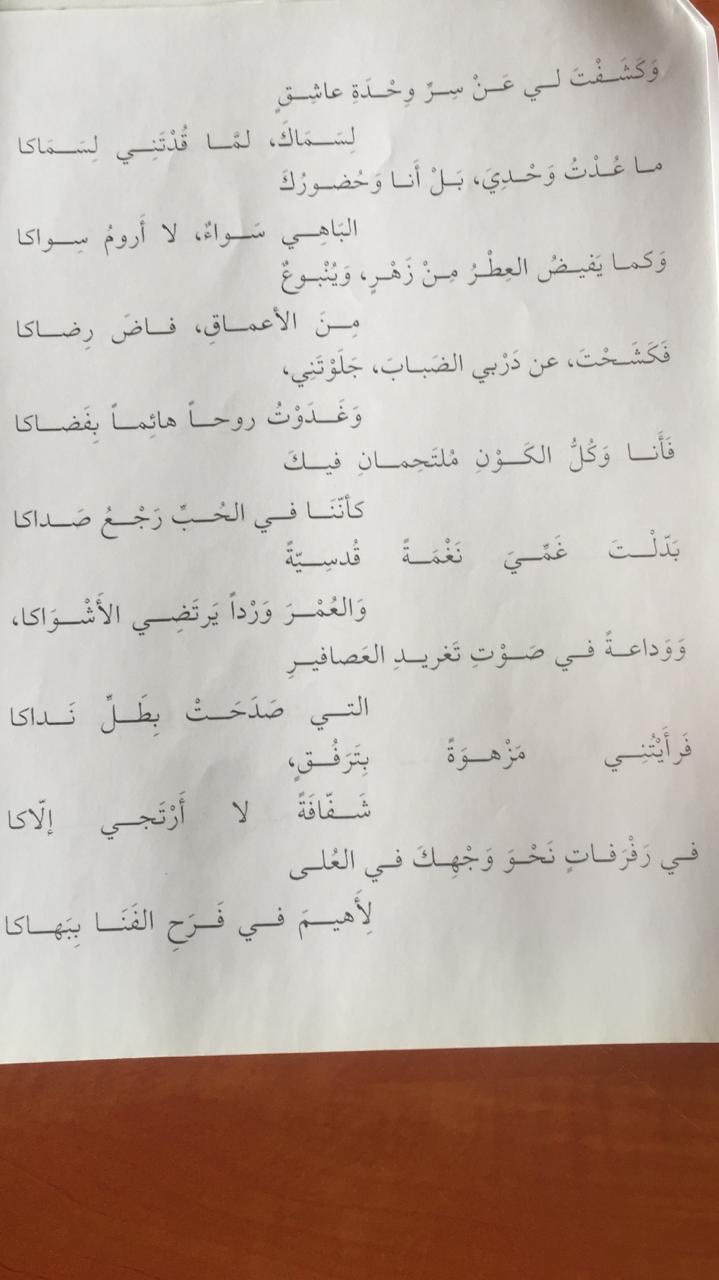 وَكَشَفْتَ لي عَنْ سِرِّ وِحْدَةِ عاشِقٍ
لِسَمَاكَ، لمَّا قُدْتَنِي لِسَمَاكا
ما عُدْتُ وَحْدِيَ، بَلْ أَنا وَحُضورُكَ
البَاهِي سَواءٌ، لا أَرومُ سِواكا
وَكما يَفيضُ العِطْرُ مِنْ زَهْرٍ، وَيُنْبوعٌ
مِنَ الأعماقِ، فاضَ رِضاكا
فَكَشَحْتَ، عن دَرْبي الضَبابَ، جَلَوْتَنِي،
وَغَدَوْتُ روحاً هائِماً بِفَضاكا
فَأَنا وَكُلُّ الكَوْنِ مُلتَحِمانِ فيكَ
كأنّنَا في الحُبِّ رَجْعُ صَداكا
بَدّلْتَ غَمِّيَ نَغْمَةً قُدسِيّةً
وَالعُمْرَ وَرْداً يَرتَضِي الأَشْوَاكا،
وَوَداعةً في صَوْتِ تَغريدِ العَصافيرِ
التي صَدَحَتْ بِطَلِّ نَداكا
فَرأَيْتُنِي مَزْهوَةً بِتَرَفُقٍ،
شَفّافَةً لا أَرْتَجي إلّاكا
في رَفْرَفاتٍ نَحْوَ وَجْهِكَ في العُلى
لِأَهيمَ في فَرَحِ الفَنَا بِبَهاكا